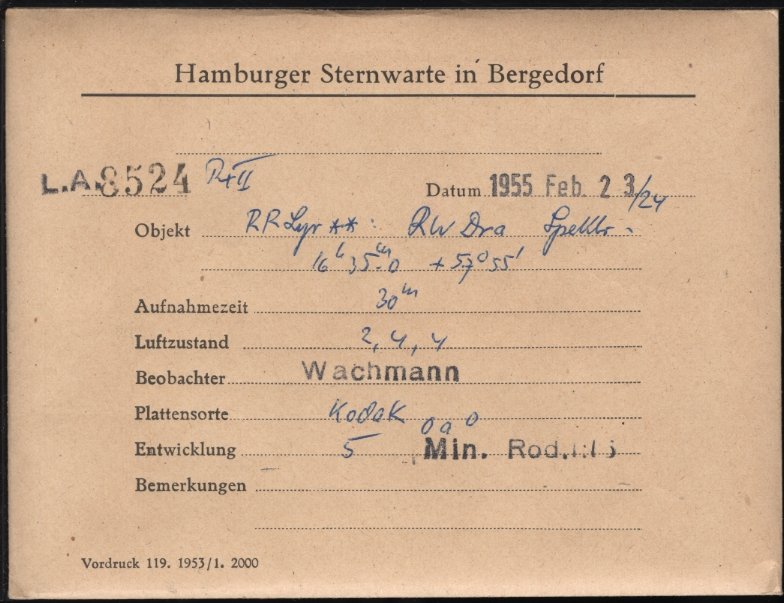 Hamburger Sternwarte in Bergedorf
L.A. 8524 P+II
Datum 1955 Feb. 23/24
Objekt RR Lyr **: RW Dra Spektr.
16h 35m.0 +57° 55'
Aufnahmezeit 30m
Luftzustand 2, 4, 4
Beobachter Wachmann
Plattensorte Kodak OaO
Entwicklung 5 Min. Rod. 1:15
Bemerkungen
Vordruck 119. 1953/1. 2000